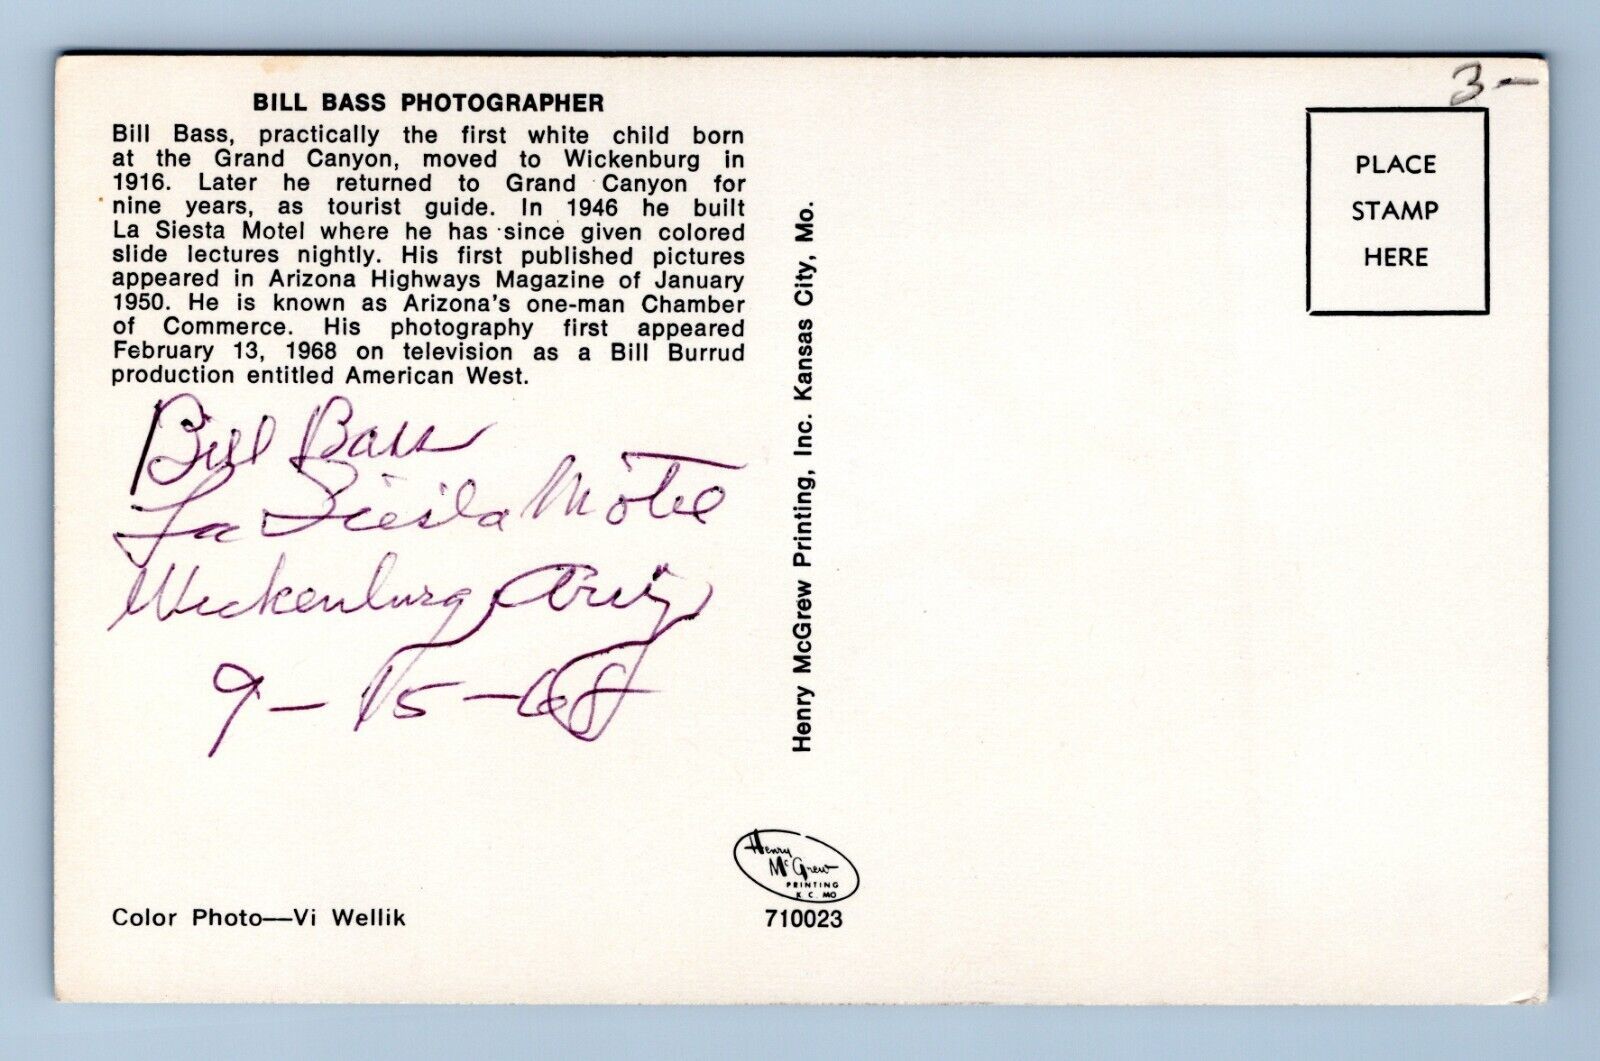 3-
BILL BASS PHOTOGRAPHER
Bill Bass, practically the first white child born
at the Grand Canyon, moved to Wickenburg in
1916. Later he returned to Grand Canyon for
nine years, as tourist guide. In 1946 he built
La Siesta Motel where he has since given colored
slide lectures nightly. His first published pictures
appeared in Arizona Highways Magazine of January
1950. He is known as Arizona's one-man Chamber
of Commerce. His photography first appeared
February 13, 1968 on television as a Bill Burrud
production entitled American West.
Bill Bass
La Siesta Motel
Wickenburg Ariz
9-15-68
Color Photo—Vi Wellik
Henry McGrew Printing, Inc. Kansas City, Mo.
Henry
McGrew
PRINTING
K. C. MO
710023
PLACE
STAMP
HERE